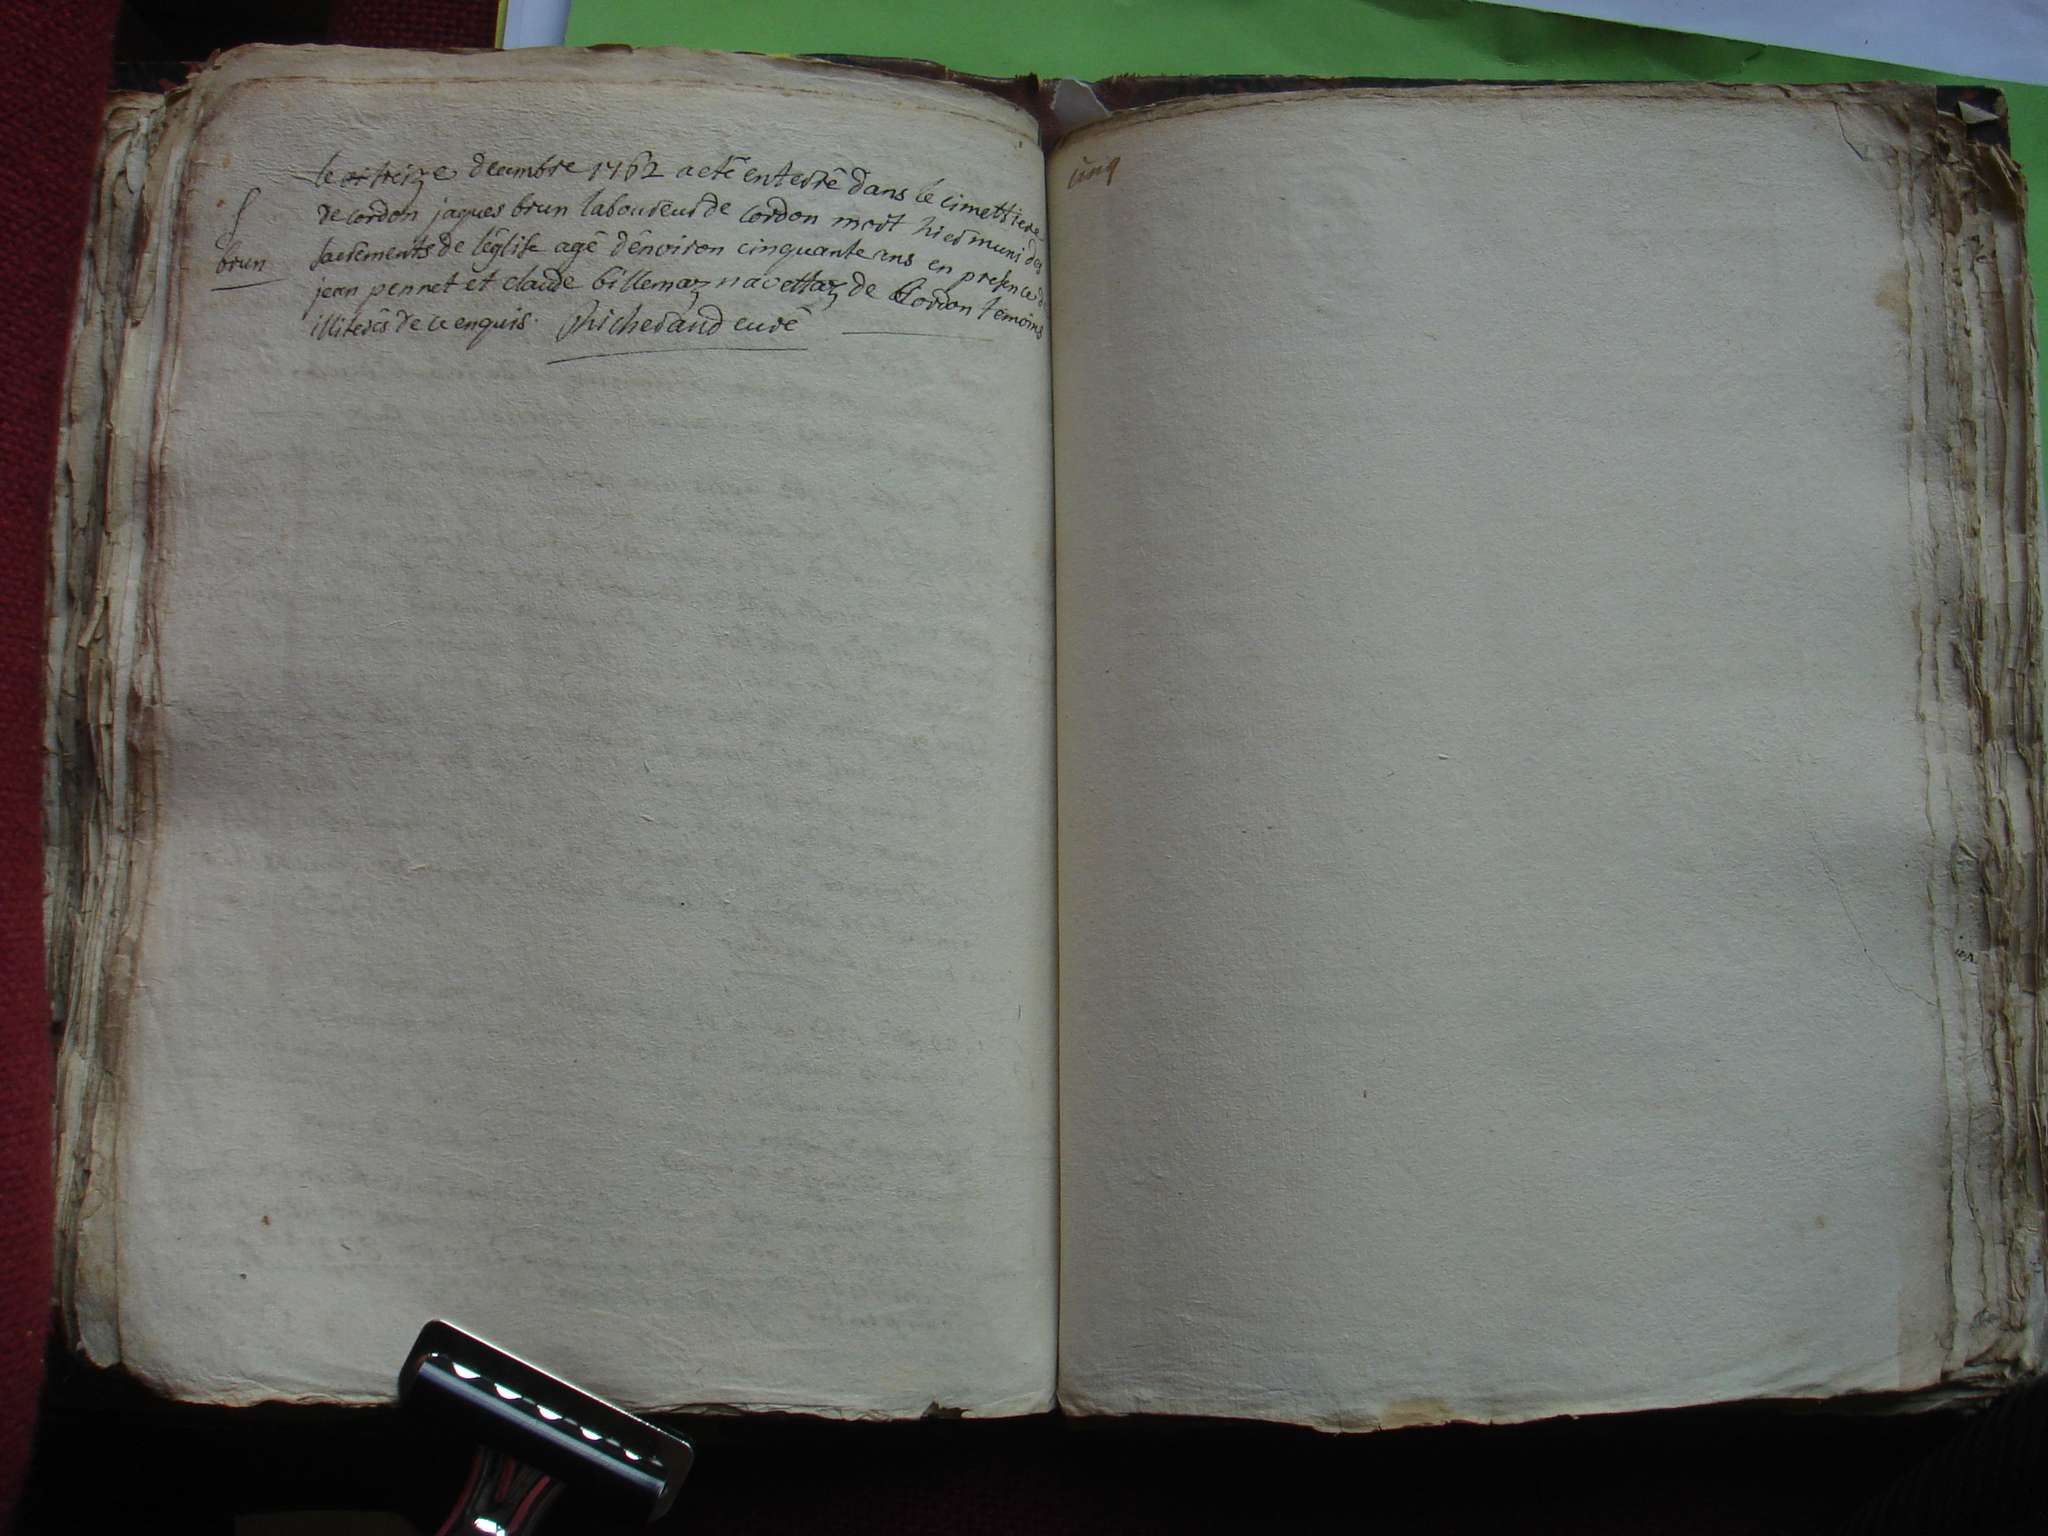 le treize decembre 1762 a etê enterrê dans le cimettiere
S
de cordon jaques brun laboureur de cordon mort hier muni des
brun
sacrements de l'église agê d'environ cinquante ans en presence de
jean pennet et claude billemaz navettaz de Cordon temoins
illiterês de ce enquis. Richerand curê
cinq